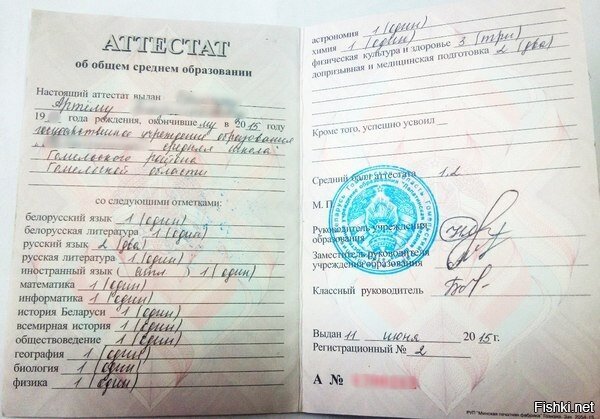 АТТЕСТАТ
об общем среднем образовании
Настоящий аттестат выдан
Артёму
19 года рождения, окончившему в 2015 году
государственное учреждение образования
средняя школа
Гомельского района
Гомельской области
со следующими отметками:
белорусский язык 1 (один)
белорусская литература 1 (один)
русский язык 2 (два)
русская литература 1 (один)
иностранный язык (англ) 1 (один)
математика 1 (один)
информатика 1 (один)
история Беларуси 1 (один)
всемирная история 1 (один)
обществоведение 1 (один)
география 1 (один)
биология 1 (один)
физика 1 (один)
астрономия 1 (один)
химия 1 (один)
физическая культура и здоровье 3 (три)
допризывная и медицинская подготовка 2 (два)
Кроме того, успешно усвоил
Средний балл аттестата 1.2
М. П.
Руководитель учреждения
образования
Заместитель руководителя
учреждения образования
Классный руководитель
Выдан 11 июня 2015 г.
Регистрационный № 2
А №
РУП "Минская печатная фабрика"
Fishki.net